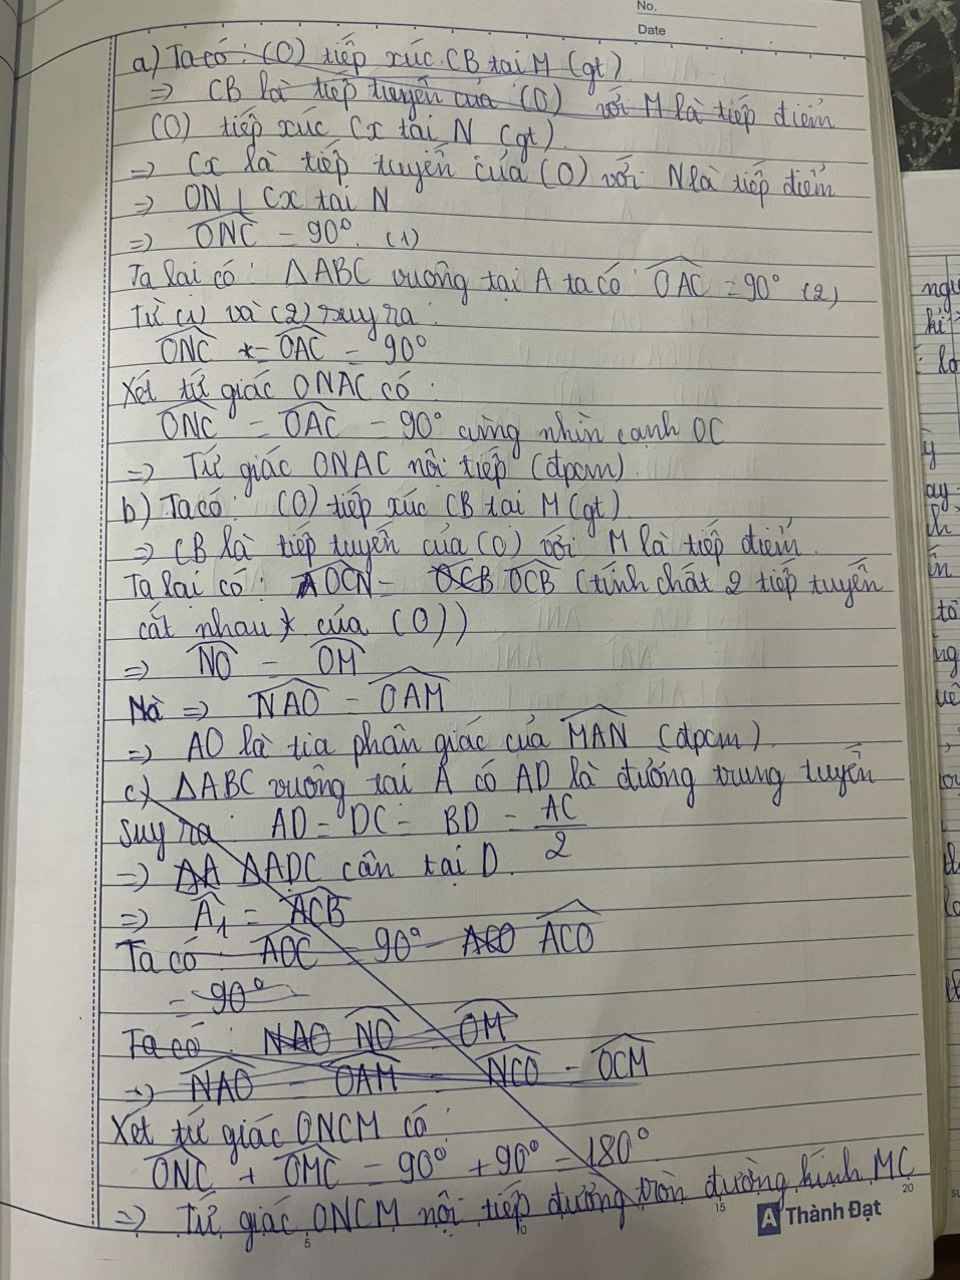 No.
Date
a) Ta có: (O) tiếp xúc CB tại M (gt)
=> CB là tiếp tuyến của (O) với M là tiếp điểm
(O) tiếp xúc Cx tại N (gt)
=> Cx là tiếp tuyến của (O) với N là tiếp điểm
=> ON ⊥ Cx tại N
=> ONC = 90° (1)
Ta lại có: ΔABC vuông tại A ta có: OAC = 90° (2)
Từ (1) và (2) suy ra:
ONC = OAC = 90°
Xét tứ giác ONAC có:
ONC = OAC = 90° cùng nhìn cạnh OC
=> Tứ giác ONAC nội tiếp (đpcm)
b) Ta có: (O) tiếp xúc CB tại M (gt)
=> CB là tiếp tuyến của (O) với M là tiếp điểm.
Ta lại có: OCN = OCB OCB (tính chất 2 tiếp tuyến
cắt nhau của (O))
=> NO = OM
Mà => NAO = OAM
=> AO là tia phân giác của MAN (đpcm)
c) ΔABC vuông tại A có AD là đường trung tuyến
suy ra: AD = DC = BD = AC/2
=> ΔA ΔADC cân tại D.
=> A1 = ACB
Ta có: AOC = 90° - ACO ACO
= 90°
Ta có: NAO NO = OM
=> NAO = OAM = NCO = OCM
Xét tứ giác ONCM có:
ONC + OMC = 90° + 90° = 180°
=> Tứ giác ONCM nội tiếp đường tròn đường kính MC
5 10 15 20
Thành Đạt